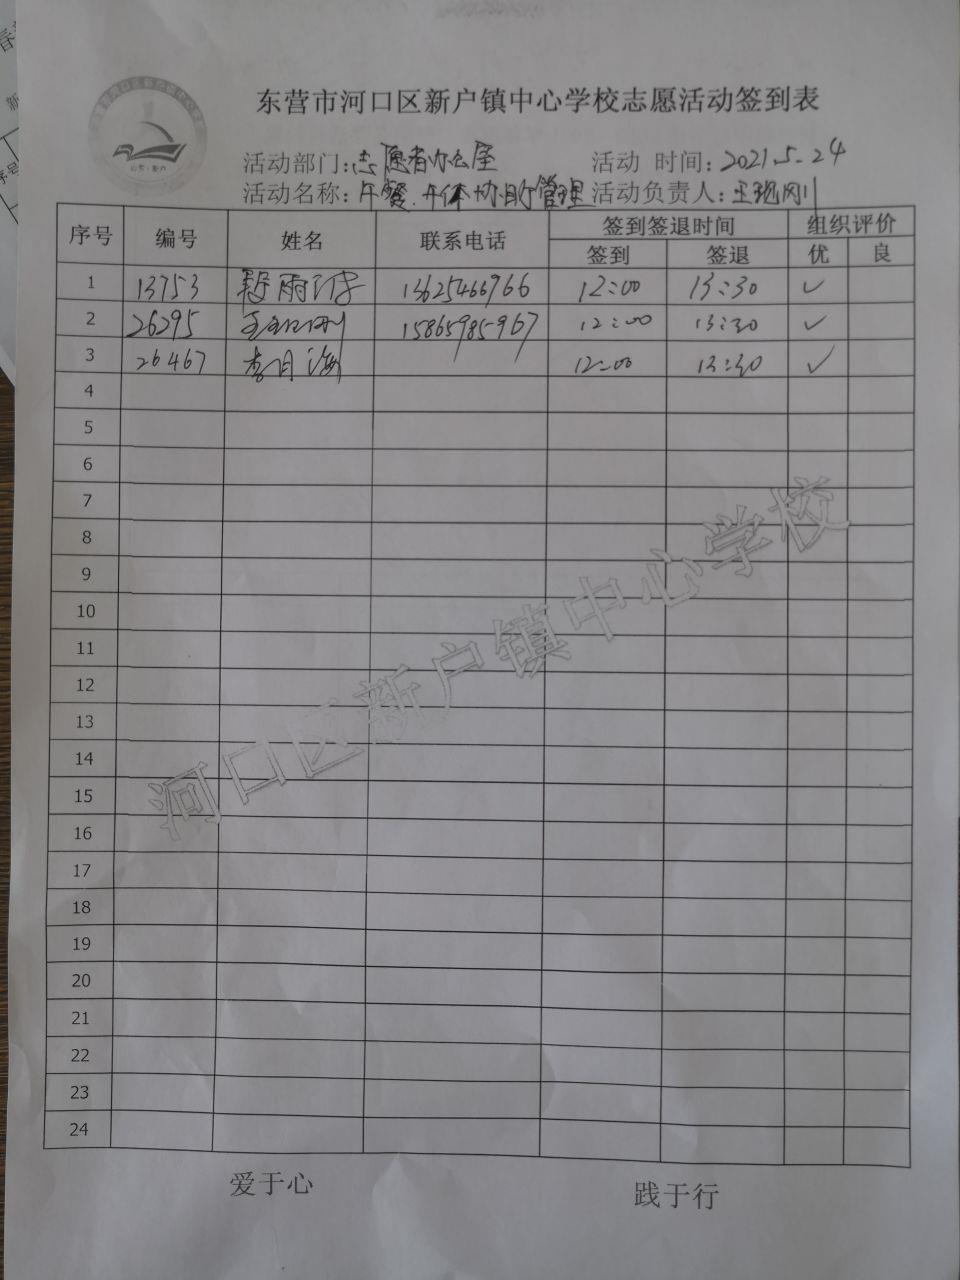 东营市河口区新户镇中心学校志愿活动签到表
活动部门:志愿者办公室 活动 时间:2021.5.24
活动名称:午餐、午休协助管理 活动负责人:王现刚
序号 编号 姓名 联系电话 签到签退时间 组织评价
签到 签退 优 良
1 13753 段雨 13625466966 12:00 13:30 ✓
2 26295 15865985967 12:00 13:30 ✓
3 26467 李月海 12:00 13:30 ✓
4
5
6
7
8
9
10
11
12
13
14
15
16
17
18
19
20
21
22
23
24
河口区新户镇中心学校
爱于心 践于行